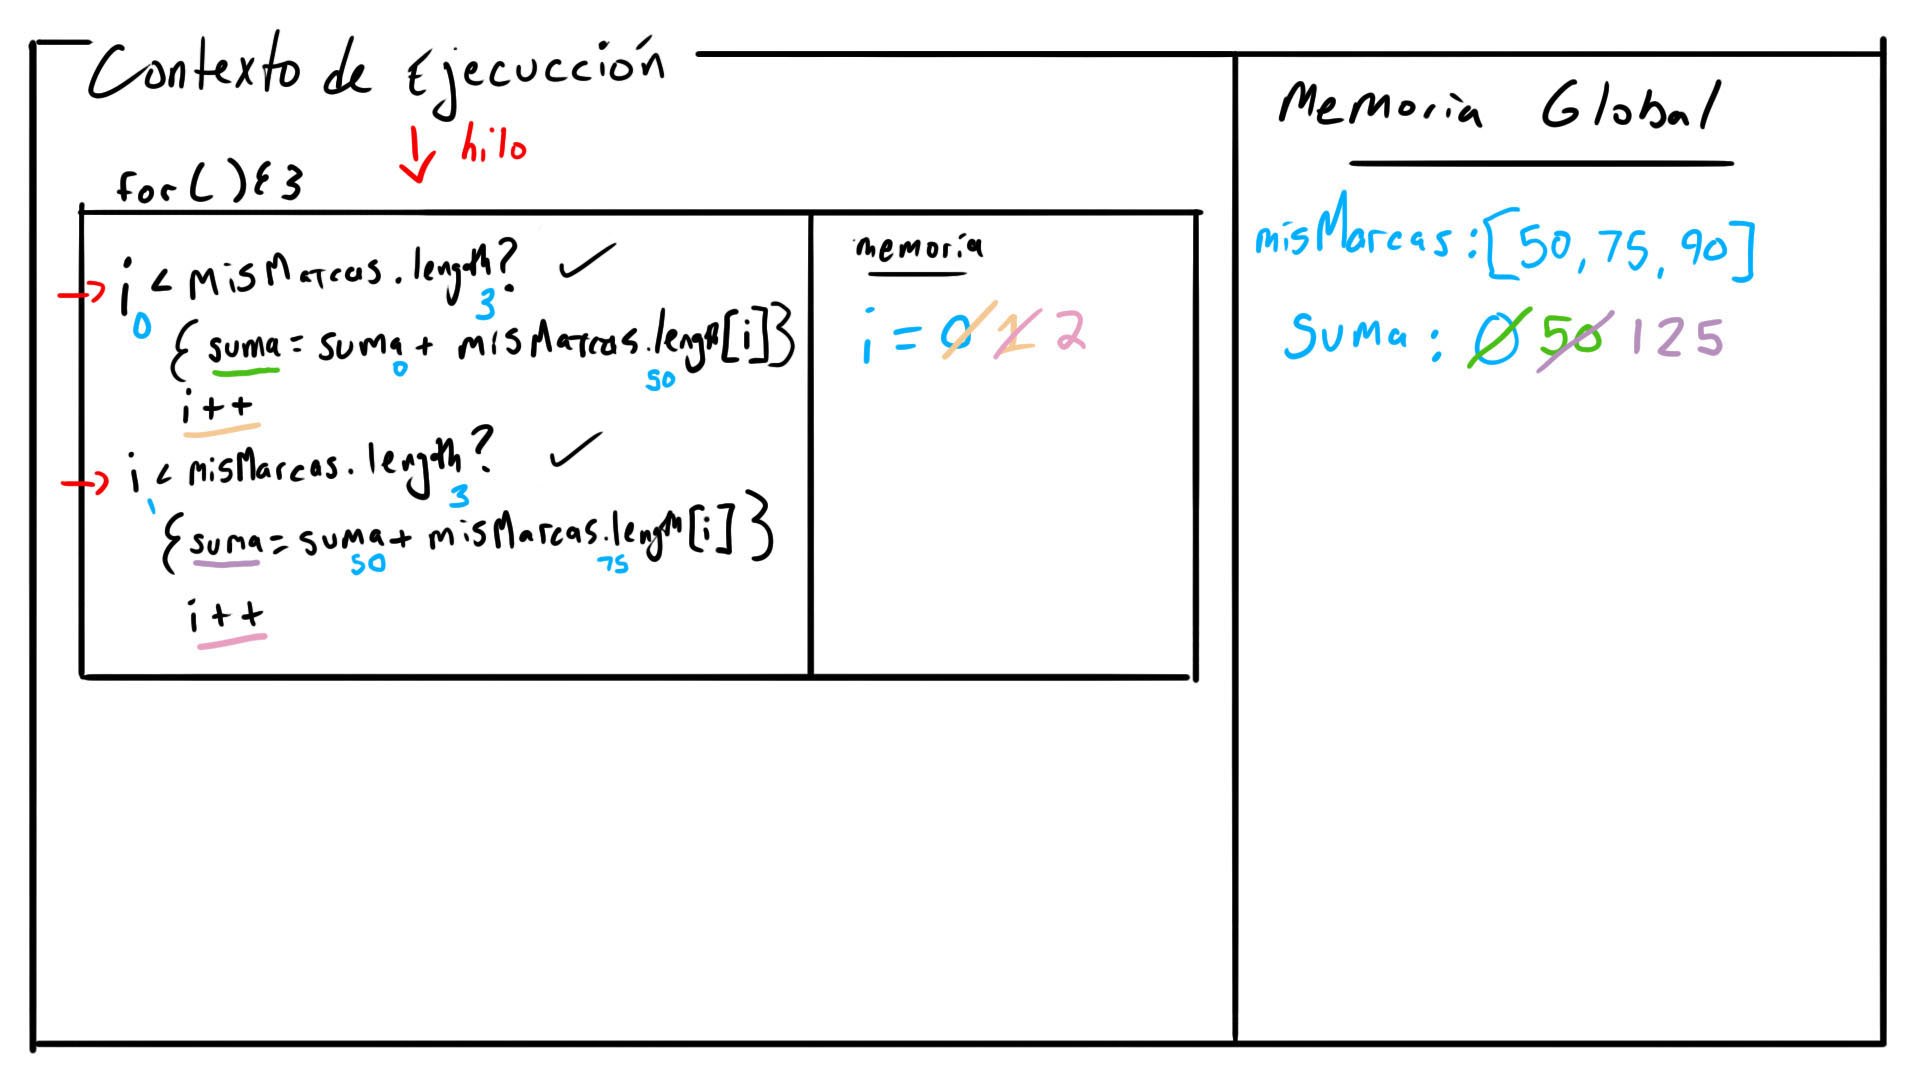 Contexto de Ejecucción
hilo
for ( ) { }
i < misMarcas.length? ✓
0 3
{ suma = suma + misMarcas.length[i] }
0 50
i++
i < misMarcas.length? ✓
1 3
{ suma = suma + misMarcas.length[i] }
50 75
i++
memoria
i = 0 1 2
Memoria Global
misMarcas: [50, 75, 90]
Suma: 0 50 125